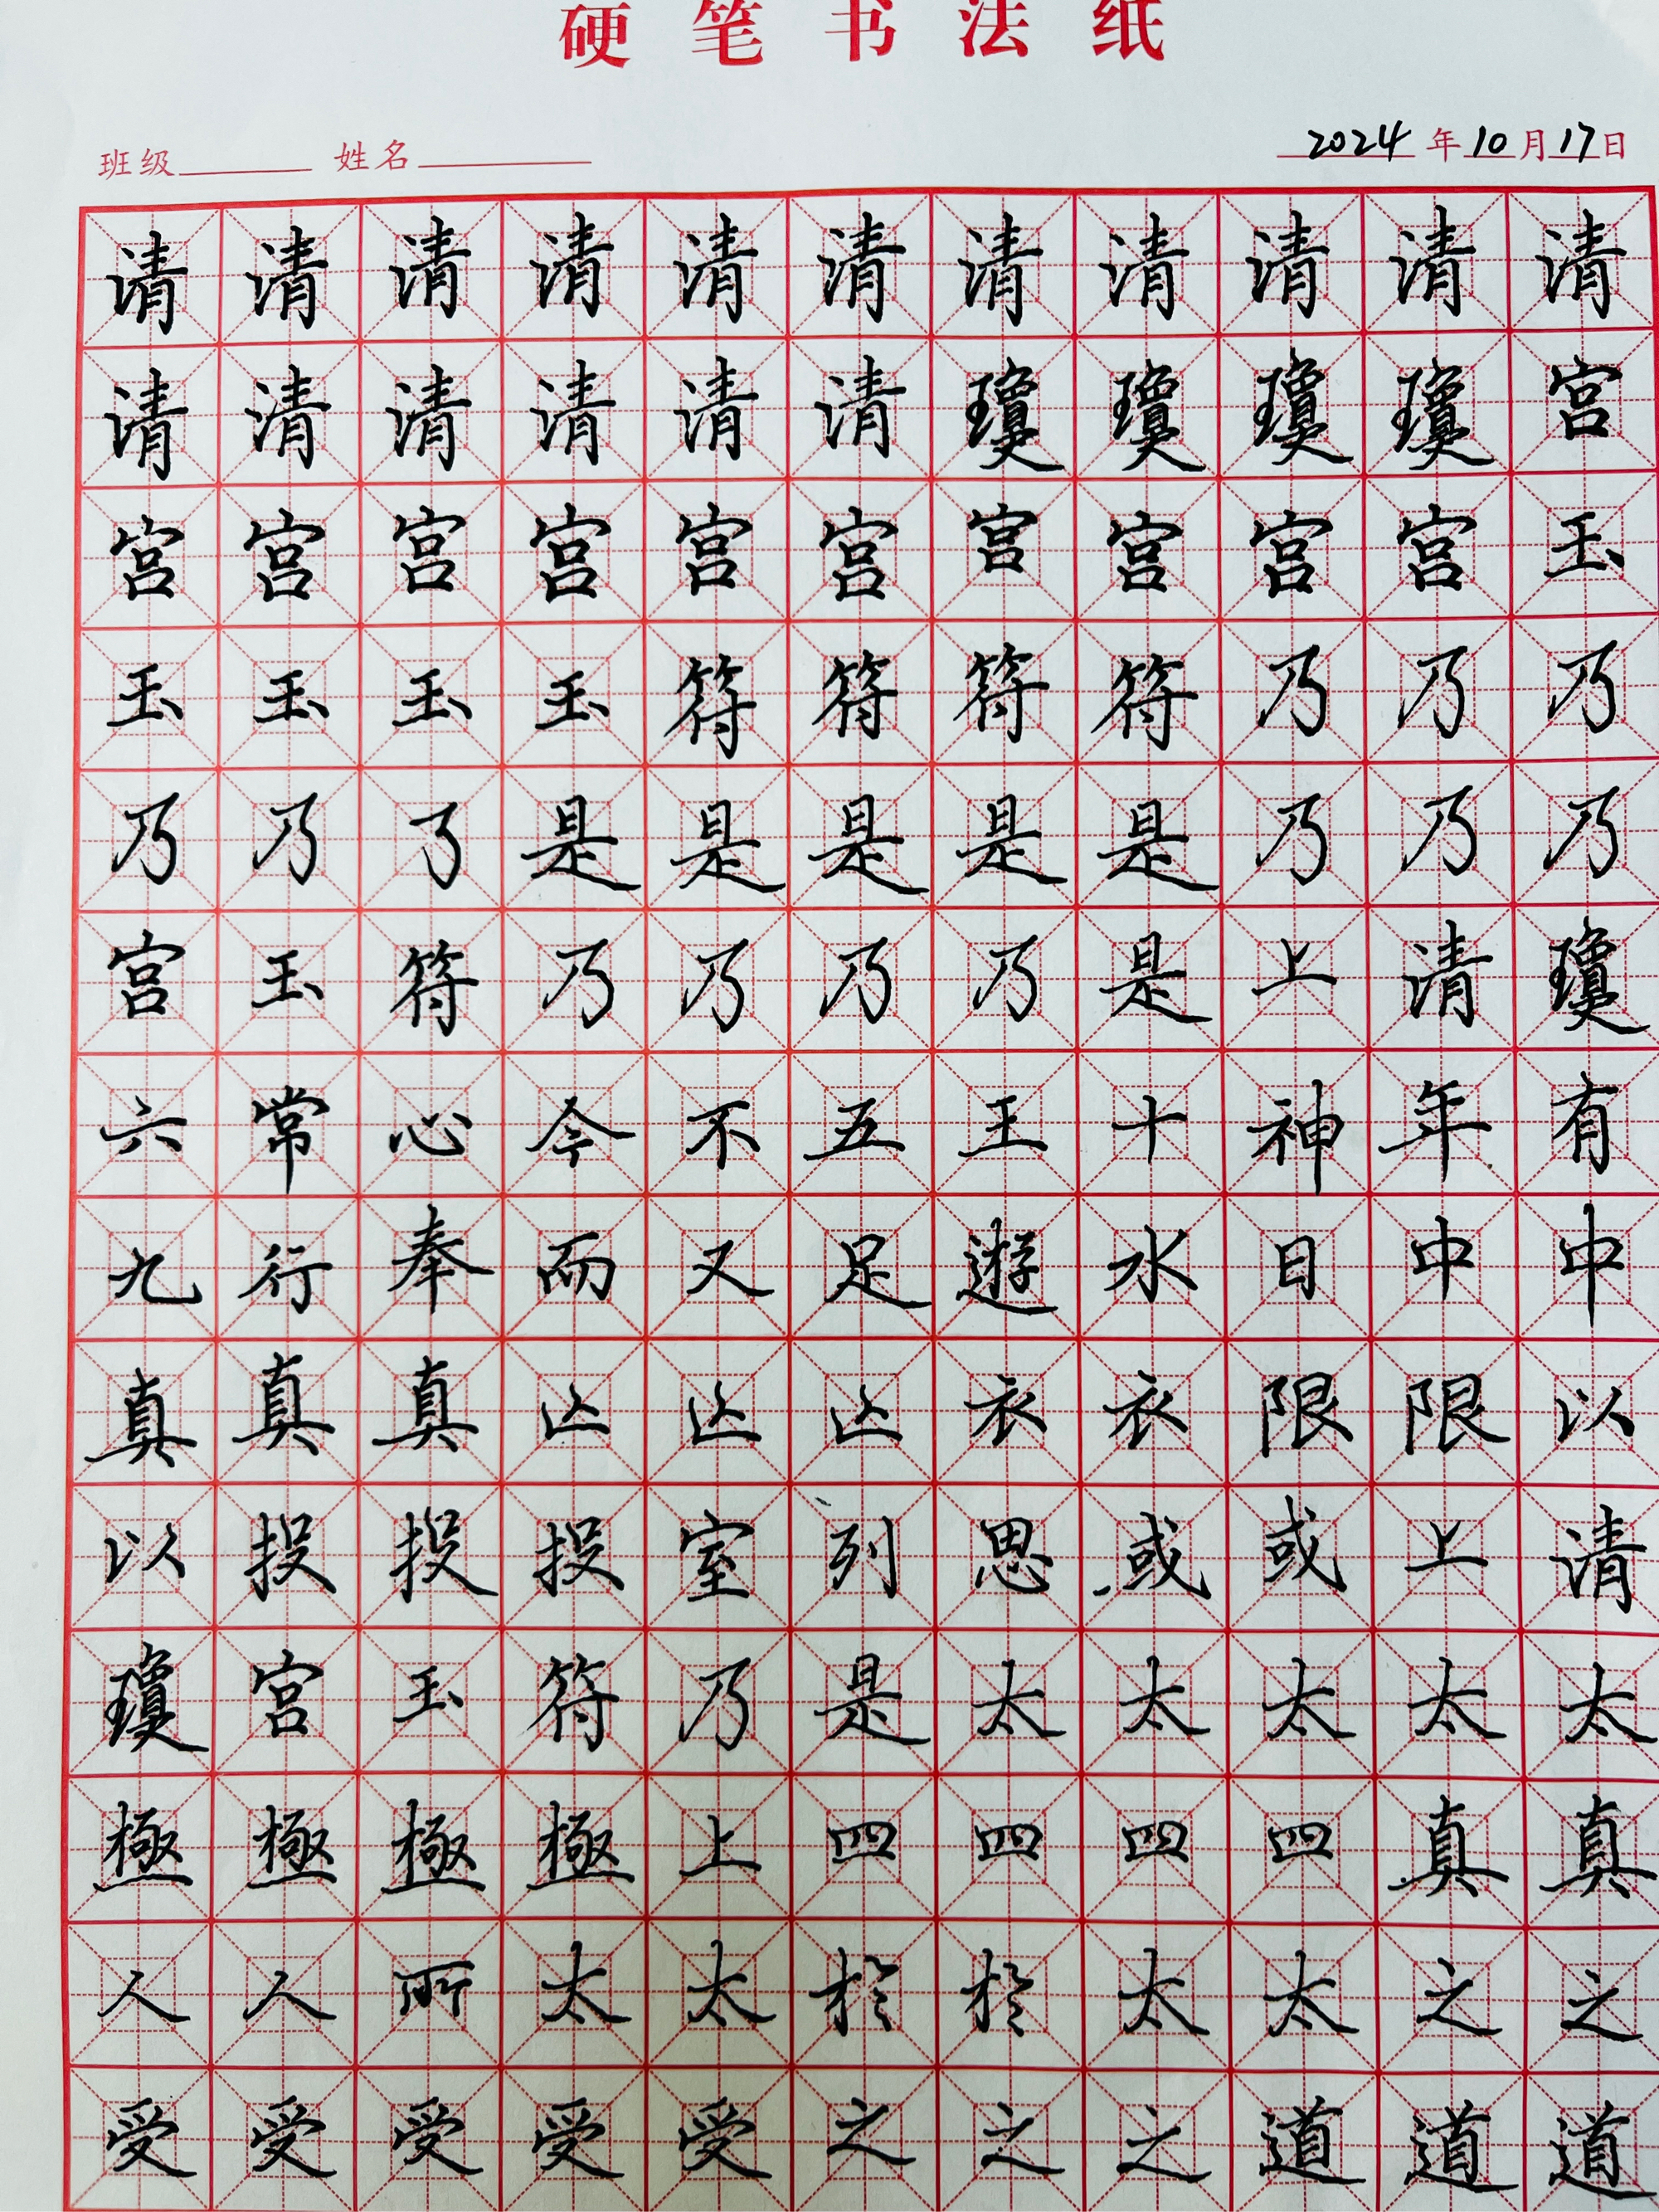 硬笔书法纸
班级 姓名 2024年10月17日
请清清清清清清清清清清
请清清清清请瓊瓊瓊瓊宫
宫宫宫宫宫宫宫宫宫宫玉
玉玉玉玉符符符符乃乃乃
乃乃了是是是是是乃乃乃
宫玉符乃乃乃乃是上请瓊
六常心今不五王十神年有
九行奉而又足遊水日中中
真真真衣衣限限以
以投投投室列思或或上请
瓊宫玉符乃是太太太太太
極極極極上四四四四真真
人人所太太於於太太之之
受受受受受之之之道道道